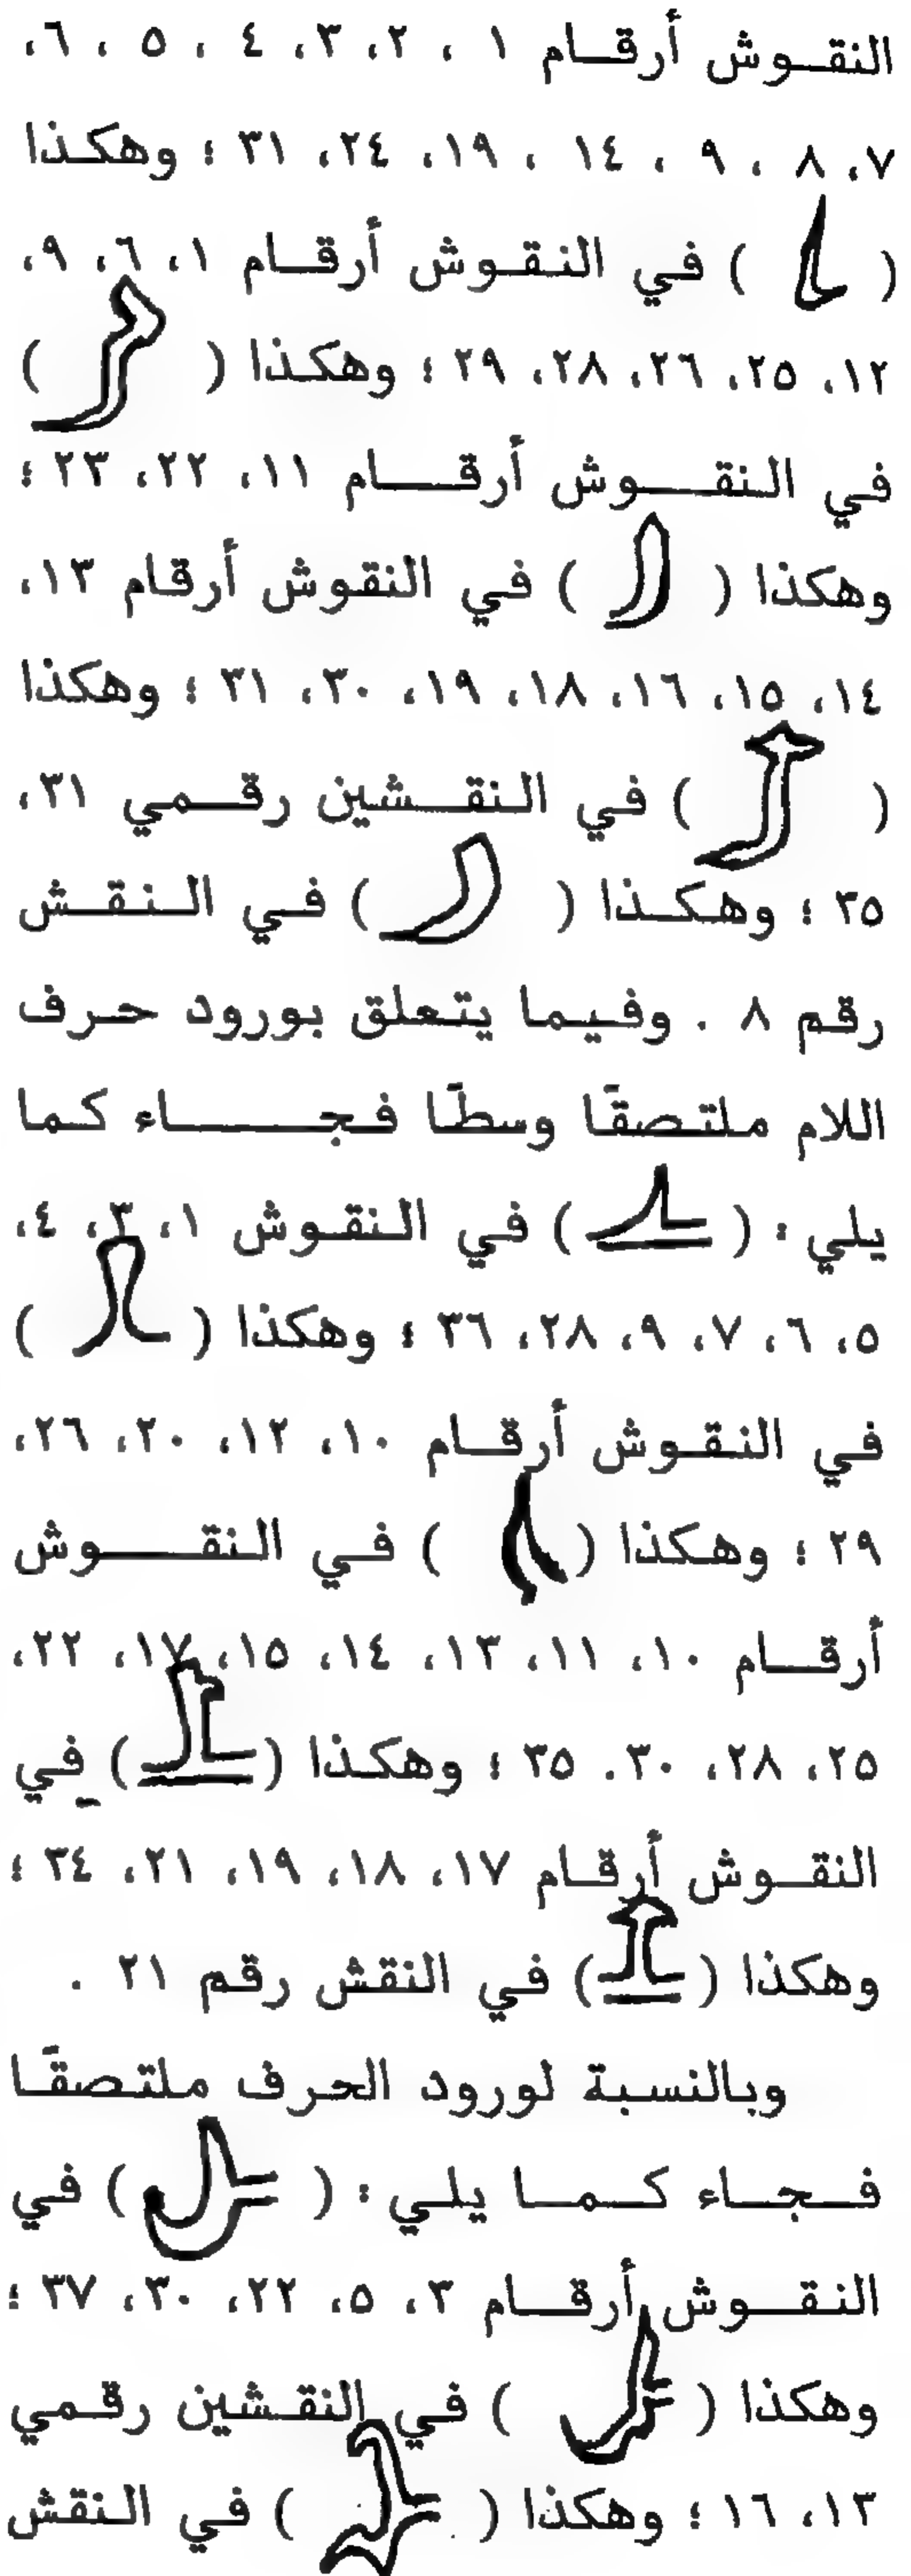 النقوش أرقام ١ ، ٢، ٣، ٤ ، ٥ ، ٦،
٧، ٨ ، ٩ ، ١٤ ، ١٩، ٢٤، ٣١ ؛ وهكذا
( ) في النقوش أرقام ١، ٦، ٩،
١٢، ٢٥، ٢٦، ٢٨، ٢٩ ؛ وهكذا ( )
في النقوش أرقام ١١، ٢٢، ٢٣ ؛
وهكذا ( ) في النقوش أرقام ١٣،
١٤، ١٥، ١٦، ١٨، ١٩، ٣٠، ٣١ ؛ وهكذا
( ) في النقشين رقمي ٣١،
٣٥ ؛ وهكذا ( ) في النقش
رقم ٨ . وفيما يتعلق بورود حرف
اللام ملتصقًا وسطًا فجاء كما
يلي : ( ) في النقوش ١، ٣، ٤،
٥، ٦، ٧، ٩، ٢٨، ٣٦ ؛ وهكذا ( )
في النقوش أرقام ١٠، ١٢، ٢٠، ٢٦،
٢٩ ؛ وهكذا ( ) في النقوش
أرقام ١٠، ١١، ١٣، ١٤، ١٥، ١٧، ٢٢،
٢٥، ٢٨، ٣٠. ٣٥ ؛ وهكذا ( ) في
النقوش أرقام ١٧، ١٨، ١٩، ٢١، ٣٤ ؛
وهكذا ( ) في النقش رقم ٢١ .
وبالنسبة لورود الحرف ملتصقًا
فجاء كما يلي : ( ) في
النقوش أرقام ٣، ٥، ٢٢، ٣٠، ٣٧ ؛
وهكذا ( ) في النقشين رقمي
١٣، ١٦ ؛ وهكذا ( ) في النقش